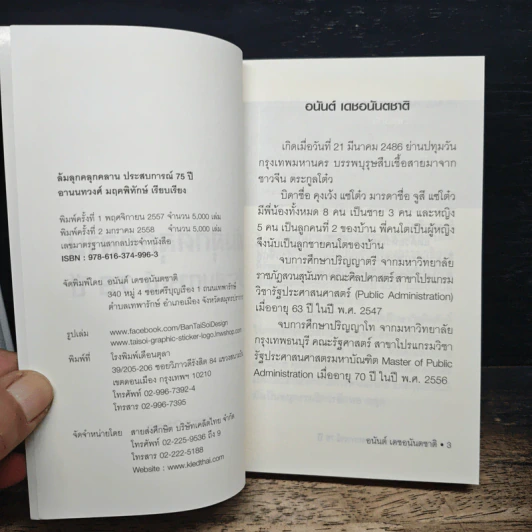 ล้มลุกคลุกคลาน ประสบการณ์ 75 ปี
อานนทวงศ์ มฤคพิทักษ์ เรียบเรียง
พิมพ์ครั้งที่ 1 พฤศจิกายน 2557 จำนวน 5,000 เล่ม
พิมพ์ครั้งที่ 2 มกราคม 2558 จำนวน 5,000 เล่ม
เลขมาตรฐานสากลประจำหนังสือ
ISBN : 978-616-374-996-3
จัดพิมพ์โดย อนันต์ เดชอนันตชาติ
340 หมู่ 4 ซอยศรีบุญเรือง 1 ถนนเทพารักษ์
ตำบลเทพารักษ์ อำเภอเมือง จังหวัดสมุทรปราการ
รูปเล่ม www.facebook.com/BanTaiSoiDesign
www.taisoi-graphic-sticker-logo.lnwshop
พิมพ์ที่ โรงพิมพ์เดือนตุลา
39/205-206 ซอยวิภาวดีรังสิต 84 แขวงสนามบิน
เขตดอนเมือง กรุงเทพฯ 10210
โทรศัพท์ 02-996-7392-4
โทรสาร 02-996-7395
จัดจำหน่ายโดย สายส่งศึกษิต บริษัทเคล็ดไทย จำกัด
โทรศัพท์ 02-225-9536 ถึง 9
โทรสาร 02-222-5188
Website : www.kledthai.com
อนันต์ เดชอนันตชาติ
เกิดเมื่อวันที่ 21 มีนาคม 2486 ย่านปทุมวัน
กรุงเทพมหานคร บรรพบุรุษสืบเชื้อสายมาจาก
ชาวจีน ตระกูลโต๋ว
บิดาชื่อ คุงเว้ง แซ่โต๋ว มารดาชื่อ จูลี แซ่โต๋ว
มีพี่น้องทั้งหมด 8 คน เป็นชาย 3 คน และหญิง
5 คน เป็นลูกคนที่ 2 ของบ้าน พี่คนโตเป็นผู้หญิง
จึงนับเป็นลูกชายคนโตของบ้าน
จบการศึกษาปริญญาตรี จากมหาวิทยาลัย
ราชภัฏสวนสุนันทา คณะศิลปศาสตร์ สาขาโปรแกรม
วิชารัฐประศาสนศาสตร์ (Public Administration)
เมื่ออายุ 63 ปี ในปี พ.ศ. 2547
จบการศึกษาปริญญาโท จากมหาวิทยาลัย
กรุงเทพธนบุรี คณะรัฐศาสตร์ สาขาโปรแกรมวิชา
รัฐประศาสนศาสตรมหาบัณฑิต Master of Public
Administration เมื่ออายุ 70 ปี ในปี พ.ศ. 2556
อนันต์ เดชอนันตชาติ • 3